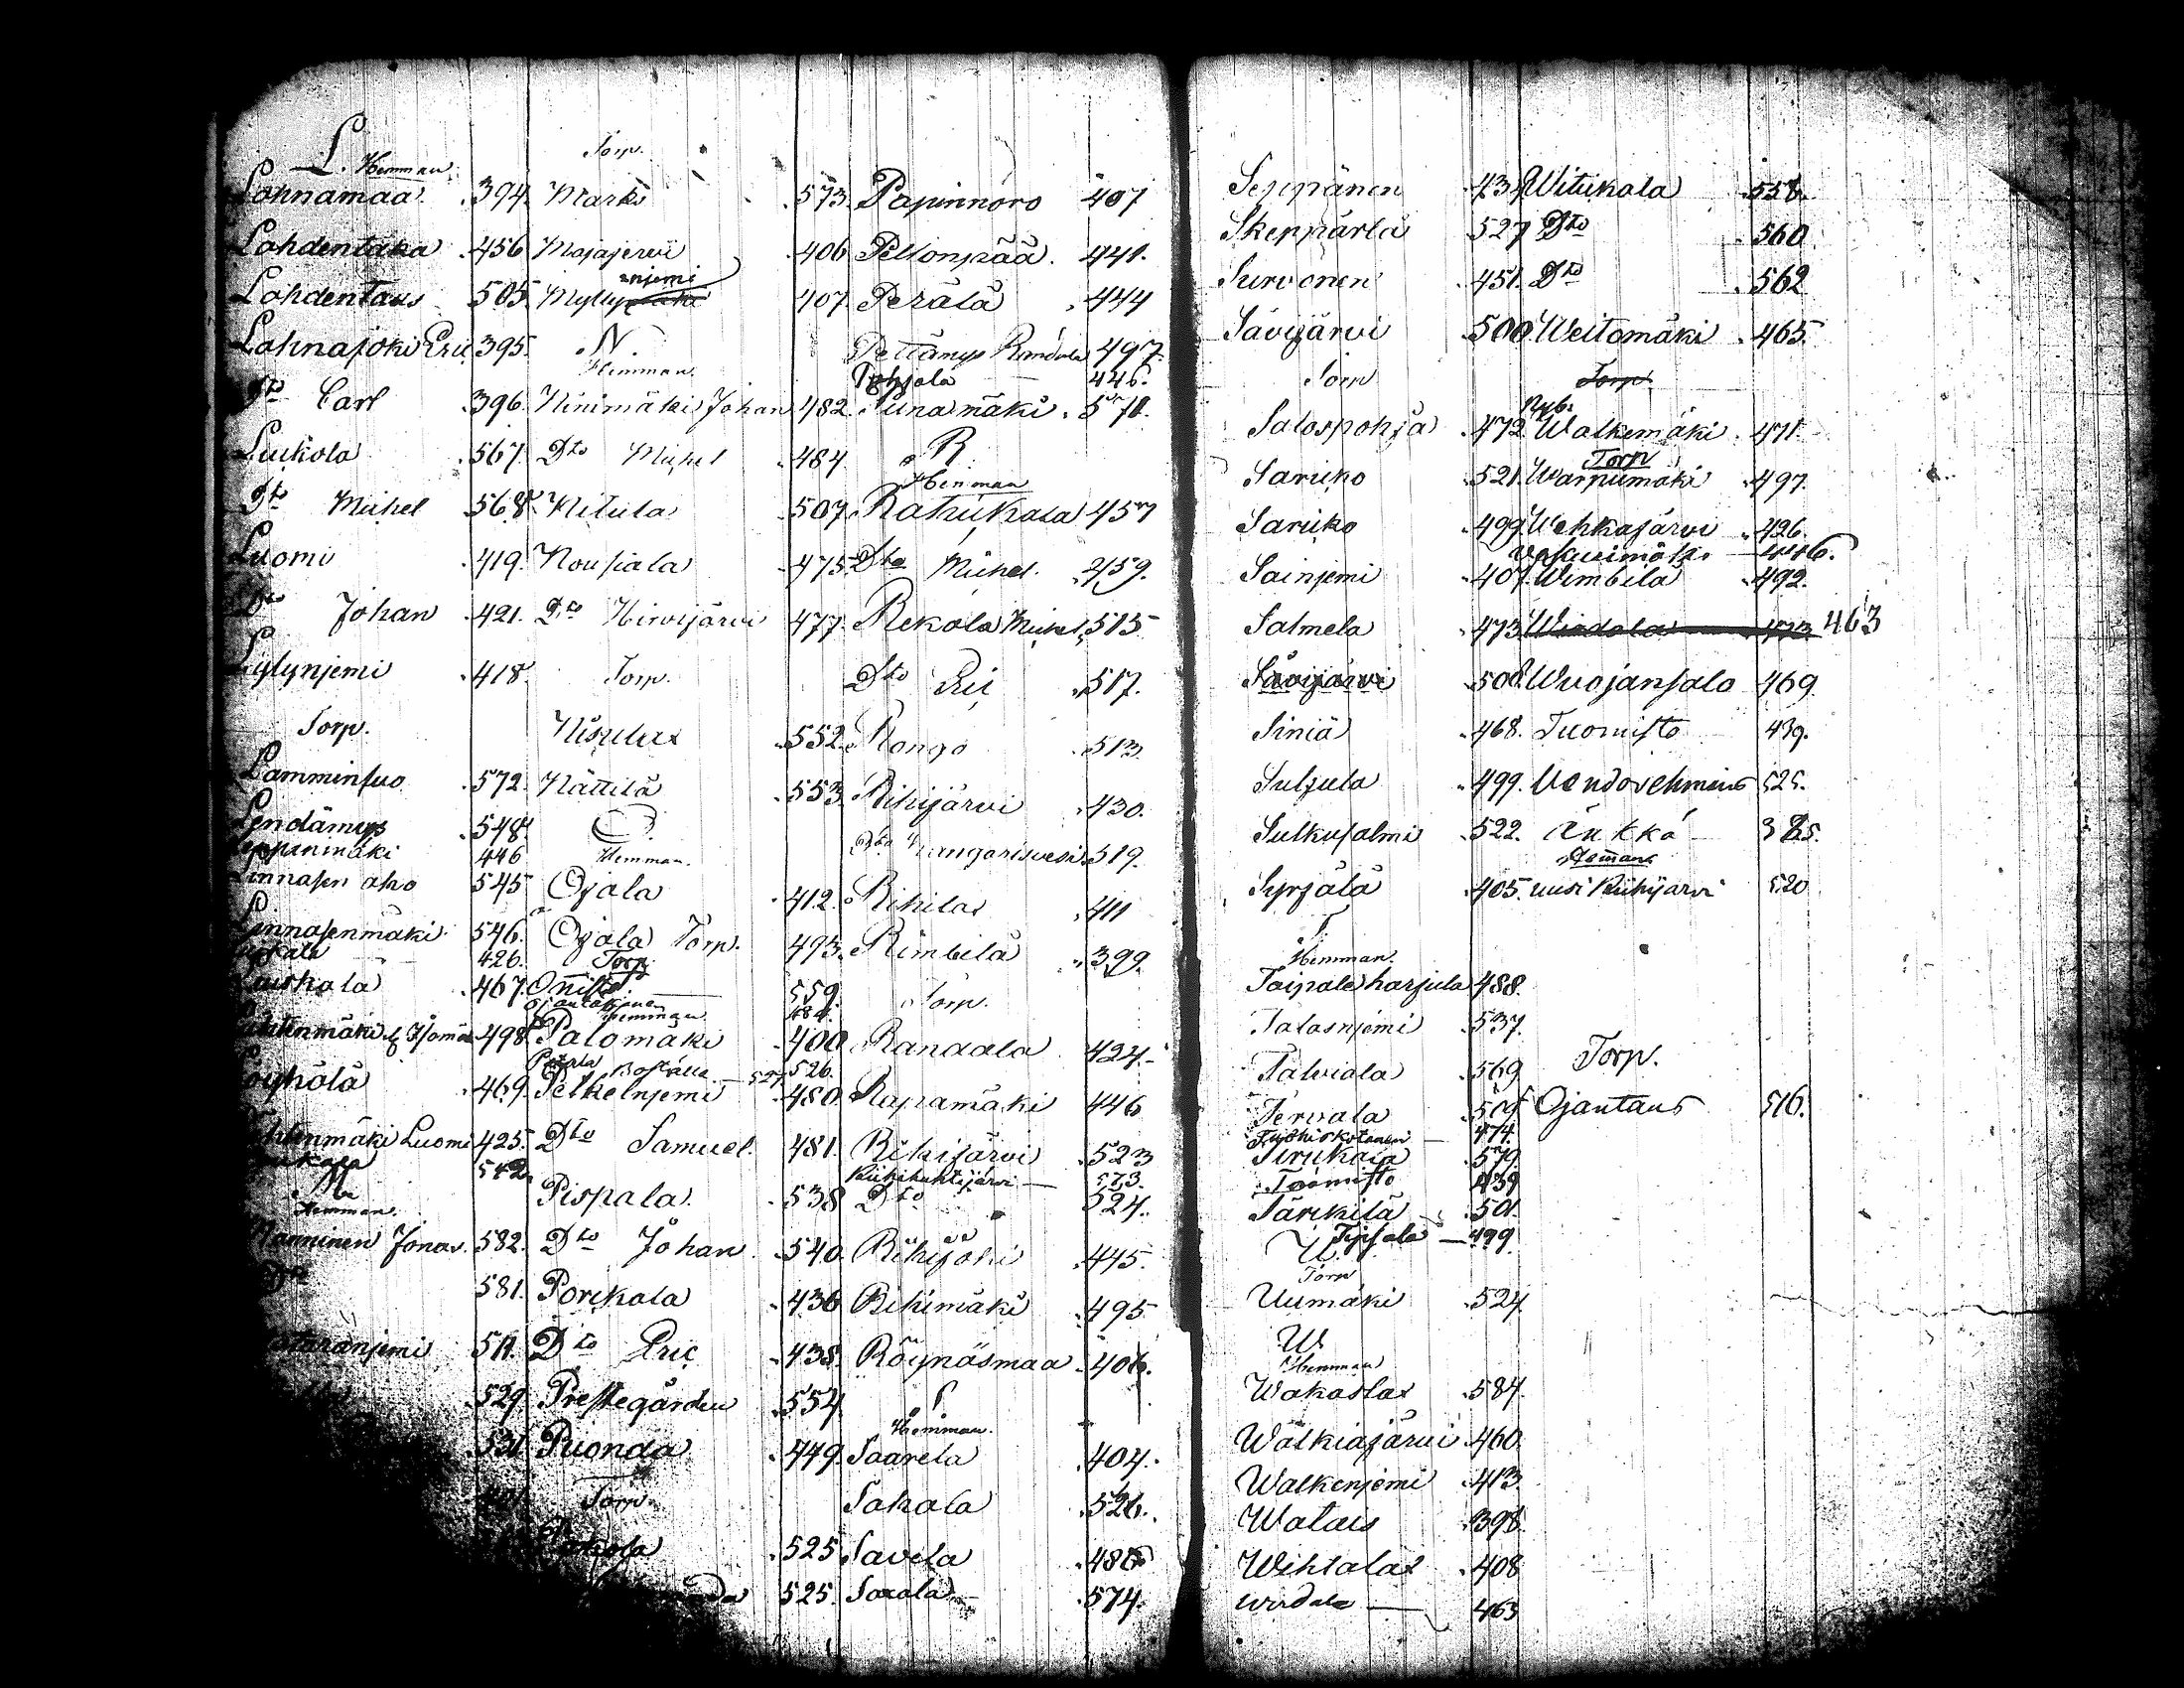 L.
Hemman
Lohnamaa 394.
Lahdentaka 456
Lahdentaus 505.
Lahnajoki Eric 395.
Dto Carl 396.
Luikola 567.
Dto Michel 568.
Luomi 419.
Dto Johan 421.
Lylynjemi 418.
Torp.
Lamminsuo 572.
Lendämys 548.
446
Linnasen aho 545
Linnasenmäki 546.
426.
467.
498.
469.
Luomi 425.
542
M.
Hemman.
Manninen Jonas. 582.
581.
511.
529.
531.
Torp.
Marks 573.
Majajervi 406
Myllynjemi 407.
N.
Hemman.
Ninimäki Johan 482.
Dto Michel 484
Nitula 507.
Nousiala 475.
Dto Hirvijärvi 477.
Torp.
Nisula 552.
Nättilä 553.
O.
Hemman.
Ojala 412.
Ojala Torp. 493.
Torp
Onisto 559.
484.
Hemman
Palomäki 400
526.
Petkelnjemi 480.
Dto Samuel. 481.
Pispala. 538
Dto Johan. 540.
Porikala 436
Dto Eric 438.
Prestegården 554.
Puonda 449.
Torp.
525
525.
Papinnoro 407
Peltonpää. 441.
Perälä 444
Pettämys Randala 497.
Pohjola 446.
Pirnamäki 571.
R.
Hemman
Rahikala 457
Dto Michel. 459.
Rekola Michel 515
Dto Eric 517.
Rongo 513
Rihijärvi 430.
Dto Kangarisvesi 519.
Rihila 411
Rimbilä 399.
Torp.
Randala 424.
Rapamäki 446
Rihijärvi 523
Riihilahtijärvi 523.
Dto 524.
Rihijoki 445.
Rihimäki 495
Röynäsmaa 406.
S
Hemman.
Saarela 404.
Sahala 526.
Savela 486
Saxala 574.
Seppänen 431
Skeppärlä 527
Survonen 451.
Sävijärvi 500
Torp
Salospohja 472
Sariko 521.
Sariko 499
Sainjemi 407
Salmela 473
Sävijärvi 500.
Siniä 468.
Suljula 499.
Sulkusalmi 522.
Syrjälä 405.
T
Hemman.
Taipale harjula 488.
Talasnjemi 537.
Talviala 569
Tervala 509
474.
579
Toomisto 439
Tärikilä 501.
Tipsala 499
U.
Torp
Uumäki 524
W
Hemman
Wakaslax 584.
Wälkiajärvi 460
Walkenjemi 413.
Watais 398.
Wihtalax 408
Wirdala 463
Witikala 558.
Dto 560
Dto 562
Weitomäki 465.
Torp
Nyb.
Walkemäki 471
Torp
Warpumäki 497.
Wehkajärvi 426.
446.
Wimbila 492.
Wirdala 473 463
Wuojansalo 469
Tuomisto 439.
Vendovehmais 525.
Änkkä 385.
Hemans
uusi Riihijärvi 520
Torp.
Ojantaus 516.